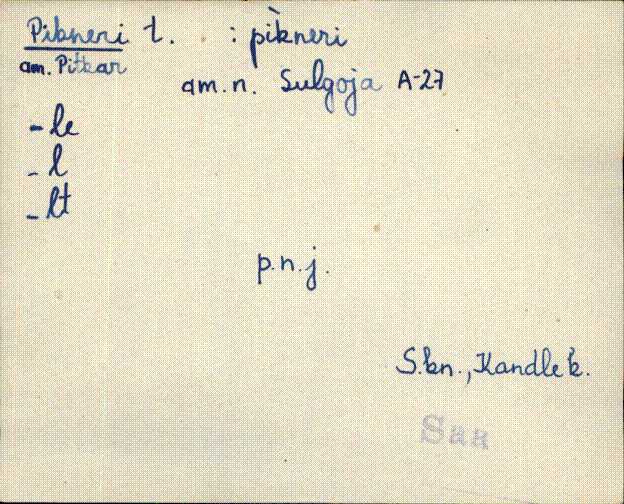 Pikneri t. : pìkneri
am. Pitkar
am.n. Sulgoja A-27
-le
-l
-lt
p.n.j.
S.kn., Kandle k.
Saa